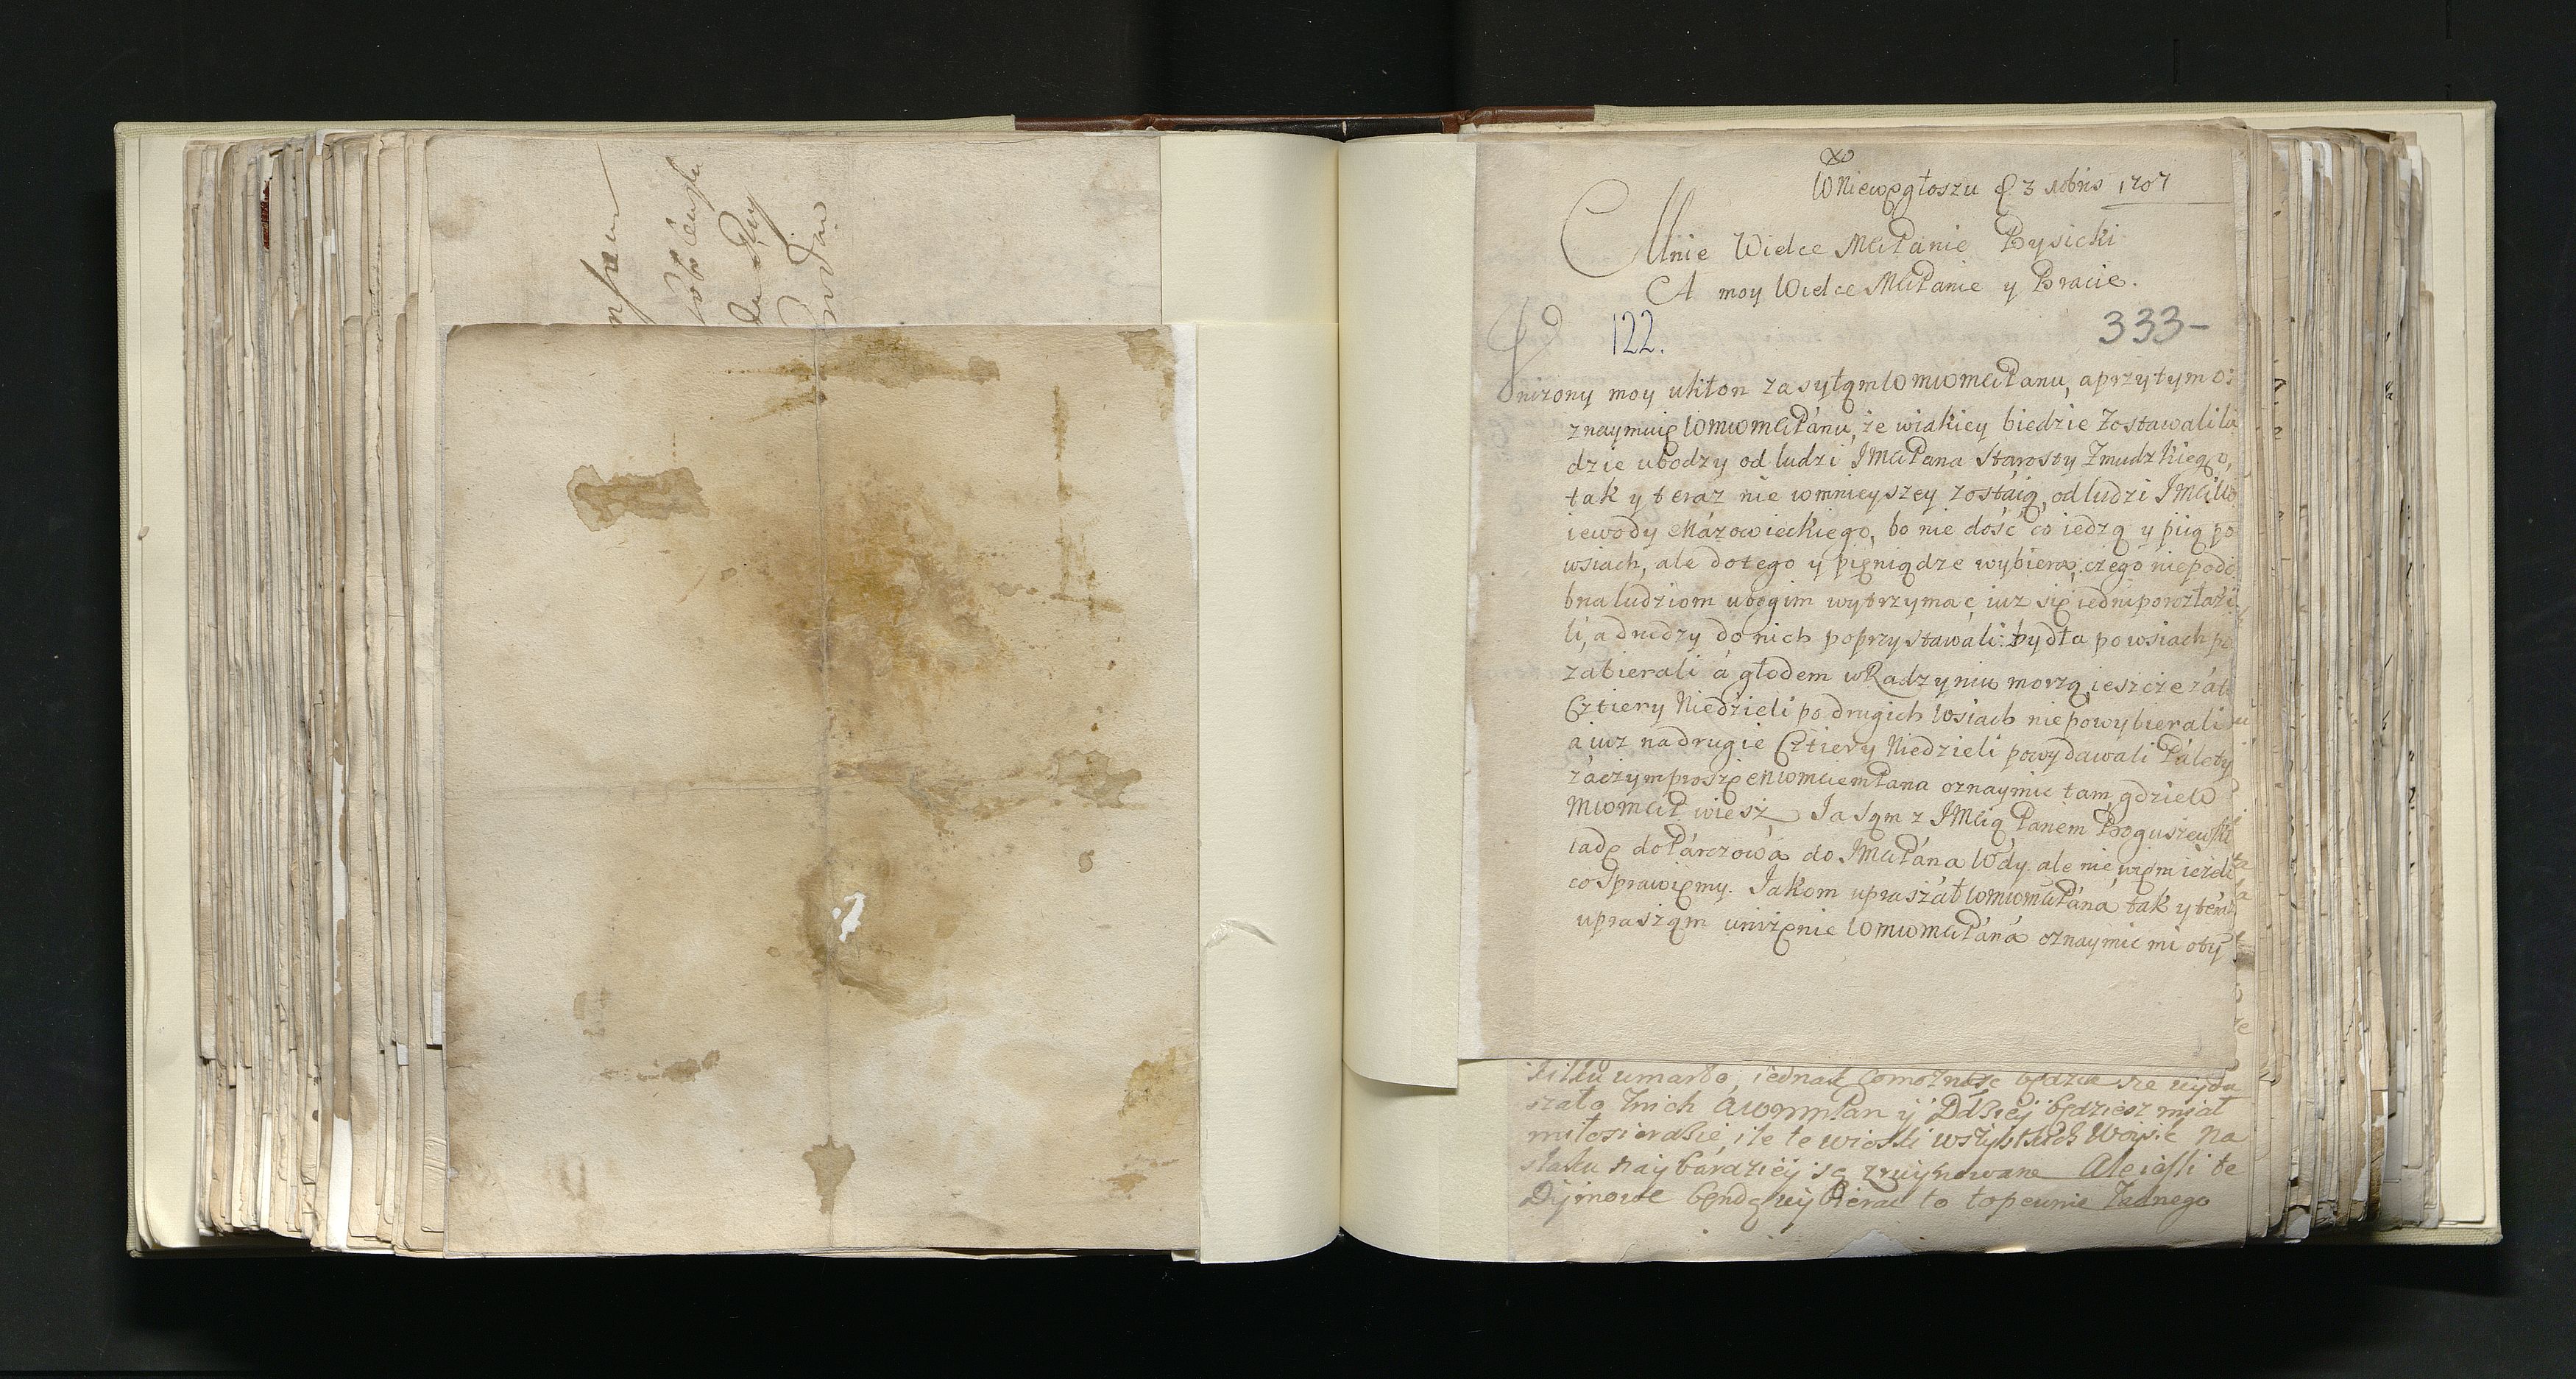 W Niewęgłoszu d 3 Nobris 1707
Mnie Wielce MciPanie Bysicki
A moy Wielce MciPanie y Bracie.
122.
333-
Unizony moy ukłon zasyłąm WMWMciPanu, a przytym o:
znaymuię WMWMciPánu, że wiakiey biedzie zostawali lu
dzie ubodzy od ludzi JMciPana Starosty Zmudzkiego,
tak y teraz nie wmnieyszey zostáią, od ludzi JMci Wo
iewody Mázowieckiego, bo nie dość co iedzą y piią po
wsiach, ale dotego y pięniądze wybieraią czego niepodo
bna ludziom ubogim wytrzymac iuz się iedni porozłazi
li, a drudzy do nich poprzystawáli: bydła po wsiach po
zabierali á głodem wRadzyniu morzą, ieszcze zá te
Cztiery Niedzieli po drugich Wsiach niepowybierali
a iuz nadrugie Cztiery Niedzieli powydawáli Pálety
záczym proszę MWMciemPana oznaymic tam, gdzie W
MWMciP wiesz Ja Sąm z JMcią Panem Boguszewski
iadę do Párczowá do JMciPána Wdy. ale nie więm ieżeli
co Sprawięmy. Jakom upraszáł WMWMciPáná tak y teráz
uprasząm unizęnie WMWMciPáná oznaymic mi o ty
kilku umarło, iednak będzie sie
szało Znich AWMMPan y Dálsiey będziesz miał
miłosierdzie, ile te wioski wszystkich Woysk na
slaku naybárdziey są zruynowane Ale iesli te
Dymowe bendą wybierac to topewnie Zadnego